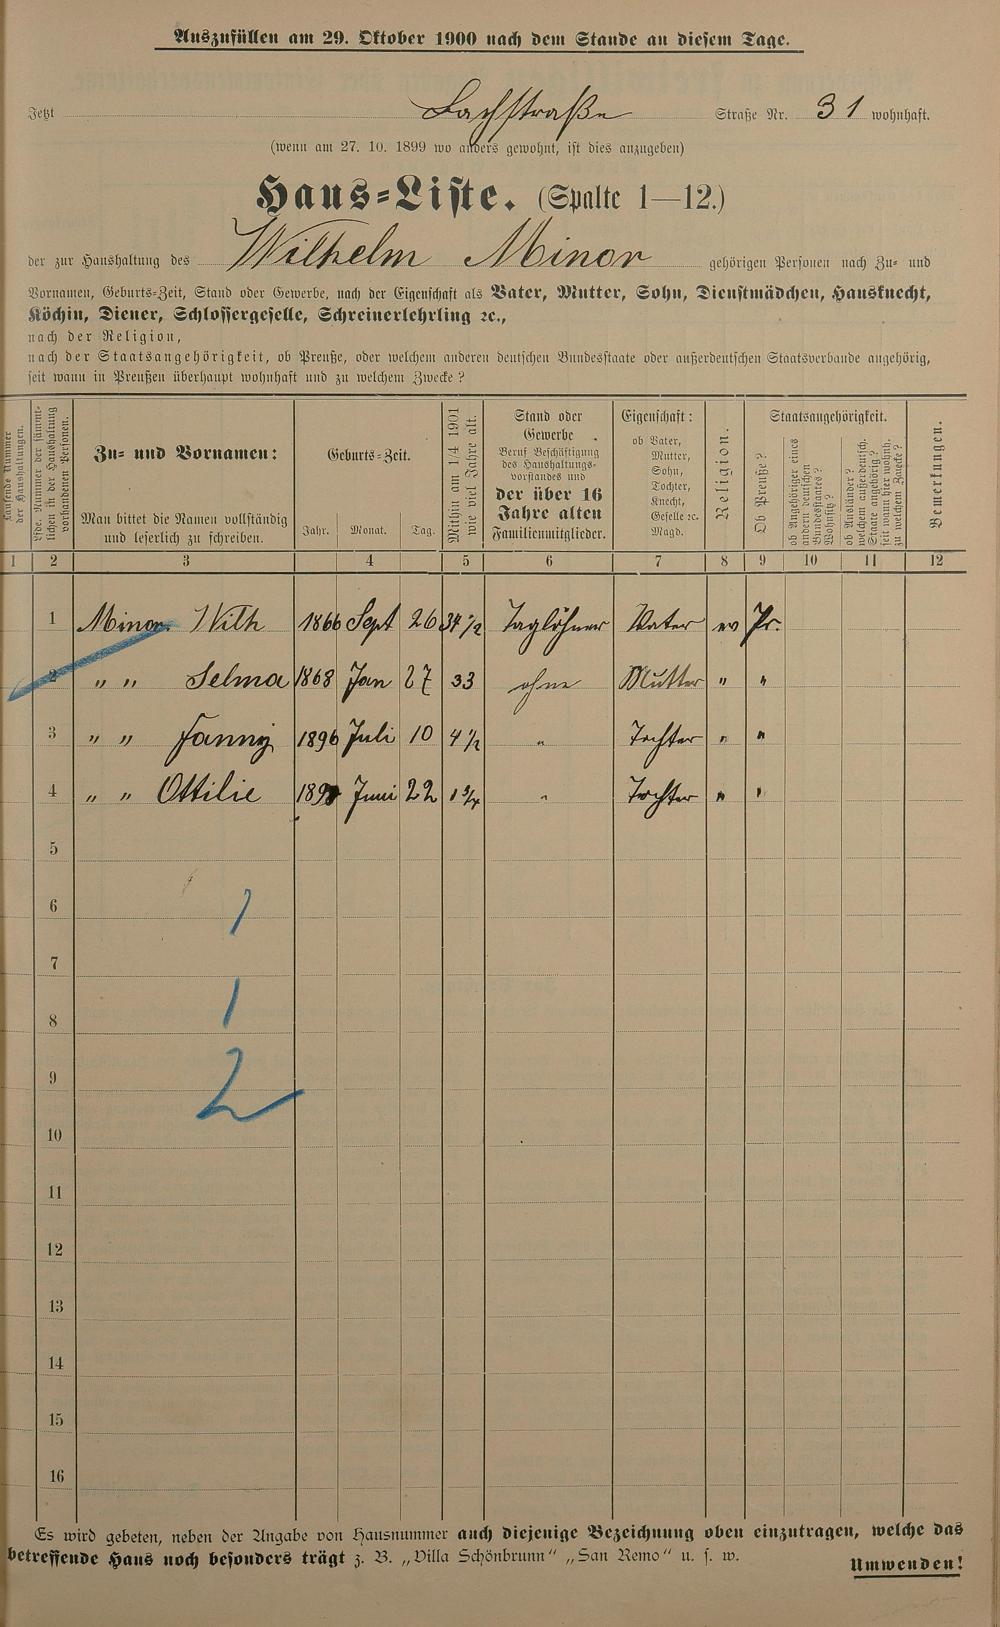 Auszufüllen am 29. Oktober 1900 nach dem Stande an diesem Tage.
Jetzt Bachstraße Straße Nr. 31 wohnhaft.
(wenn am 27. 10. 1899 wo anders gewohnt, ist dies anzugeben)
Haus-Liste. (Spalte 1—12.)
der zur Haushaltung des Wilhelm Minor gehörigen Personen nach Zu- und
Vornamen, Geburts-Zeit, Stand oder Gewerbe, nach der Eigenschaft als Vater, Mutter, Sohn, Dienstmädchen, Hausknecht,
Köchin, Diener, Schlossergeselle, Schreinerlehrling ꝛc.,
nach der Religion,
nach der Staatsangehörigkeit, ob Preuße, oder welchem anderen deutschen Bundesstaate oder außerdeutschen Staatsverbande angehörig,
seit wann in Preußen überhaupt wohnhaft und zu welchem Zwecke?
Laufende Nummer
der Haushaltungen.
Lfde. Nummer der sämmt-
lichen in der Haushaltung
vorhandenen Personen.
Zu- und Vornamen:
Man bittet die Namen vollständig
und leserlich zu schreiben.
Geburts-Zeit.
Jahr. Monat. Tag.
Mithin am 1/4 1901
wie viel Jahre alt.
Stand oder
Gewerbe
Beruf Beschäftigung
des Haushaltungs-
vorstandes und
der über 16
Jahre alten
Familienmitglieder.
Eigenschaft:
ob Vater,
Mutter,
Sohn,
Tochter,
Knecht,
Geselle ꝛc.
Magd.
Religion.
Staatsangehörigkeit.
Ob Preuße?
ob Angehöriger eines
andern deutschen
Bundesstaates?
Wohnsitz?
ob Ausländer?
welchem außerdeutsch.
Staate angehörig?
seit wann hier wohnh.
zu welchem Zwecke?
Bemerkungen.
1 2 3 4 5 6 7 8 9 10 11 12
1 Minor Wilh 1866 Sept 26 34 1/2 Taglöhner Vater ev Pr.
2 " " Selma 1868 Jan 27 33 ohne Mutter " "
3 " " Fanny 1896 Juli 10 4 1/2 " Tochter " "
4 " " Ottilie Juni 22 1 3/4 " Tochter " "
5
6 1
7
8 1
9 2
10
11
12
13
14
15
16
Es wird gebeten, neben der Angabe von Hausnummer auch diejenige Bezeichnung oben einzutragen, welche das
betreffende Haus noch besonders trägt z. B. „Villa Schönbrunn“ „San Remo“ u. s. w.
Umwenden!